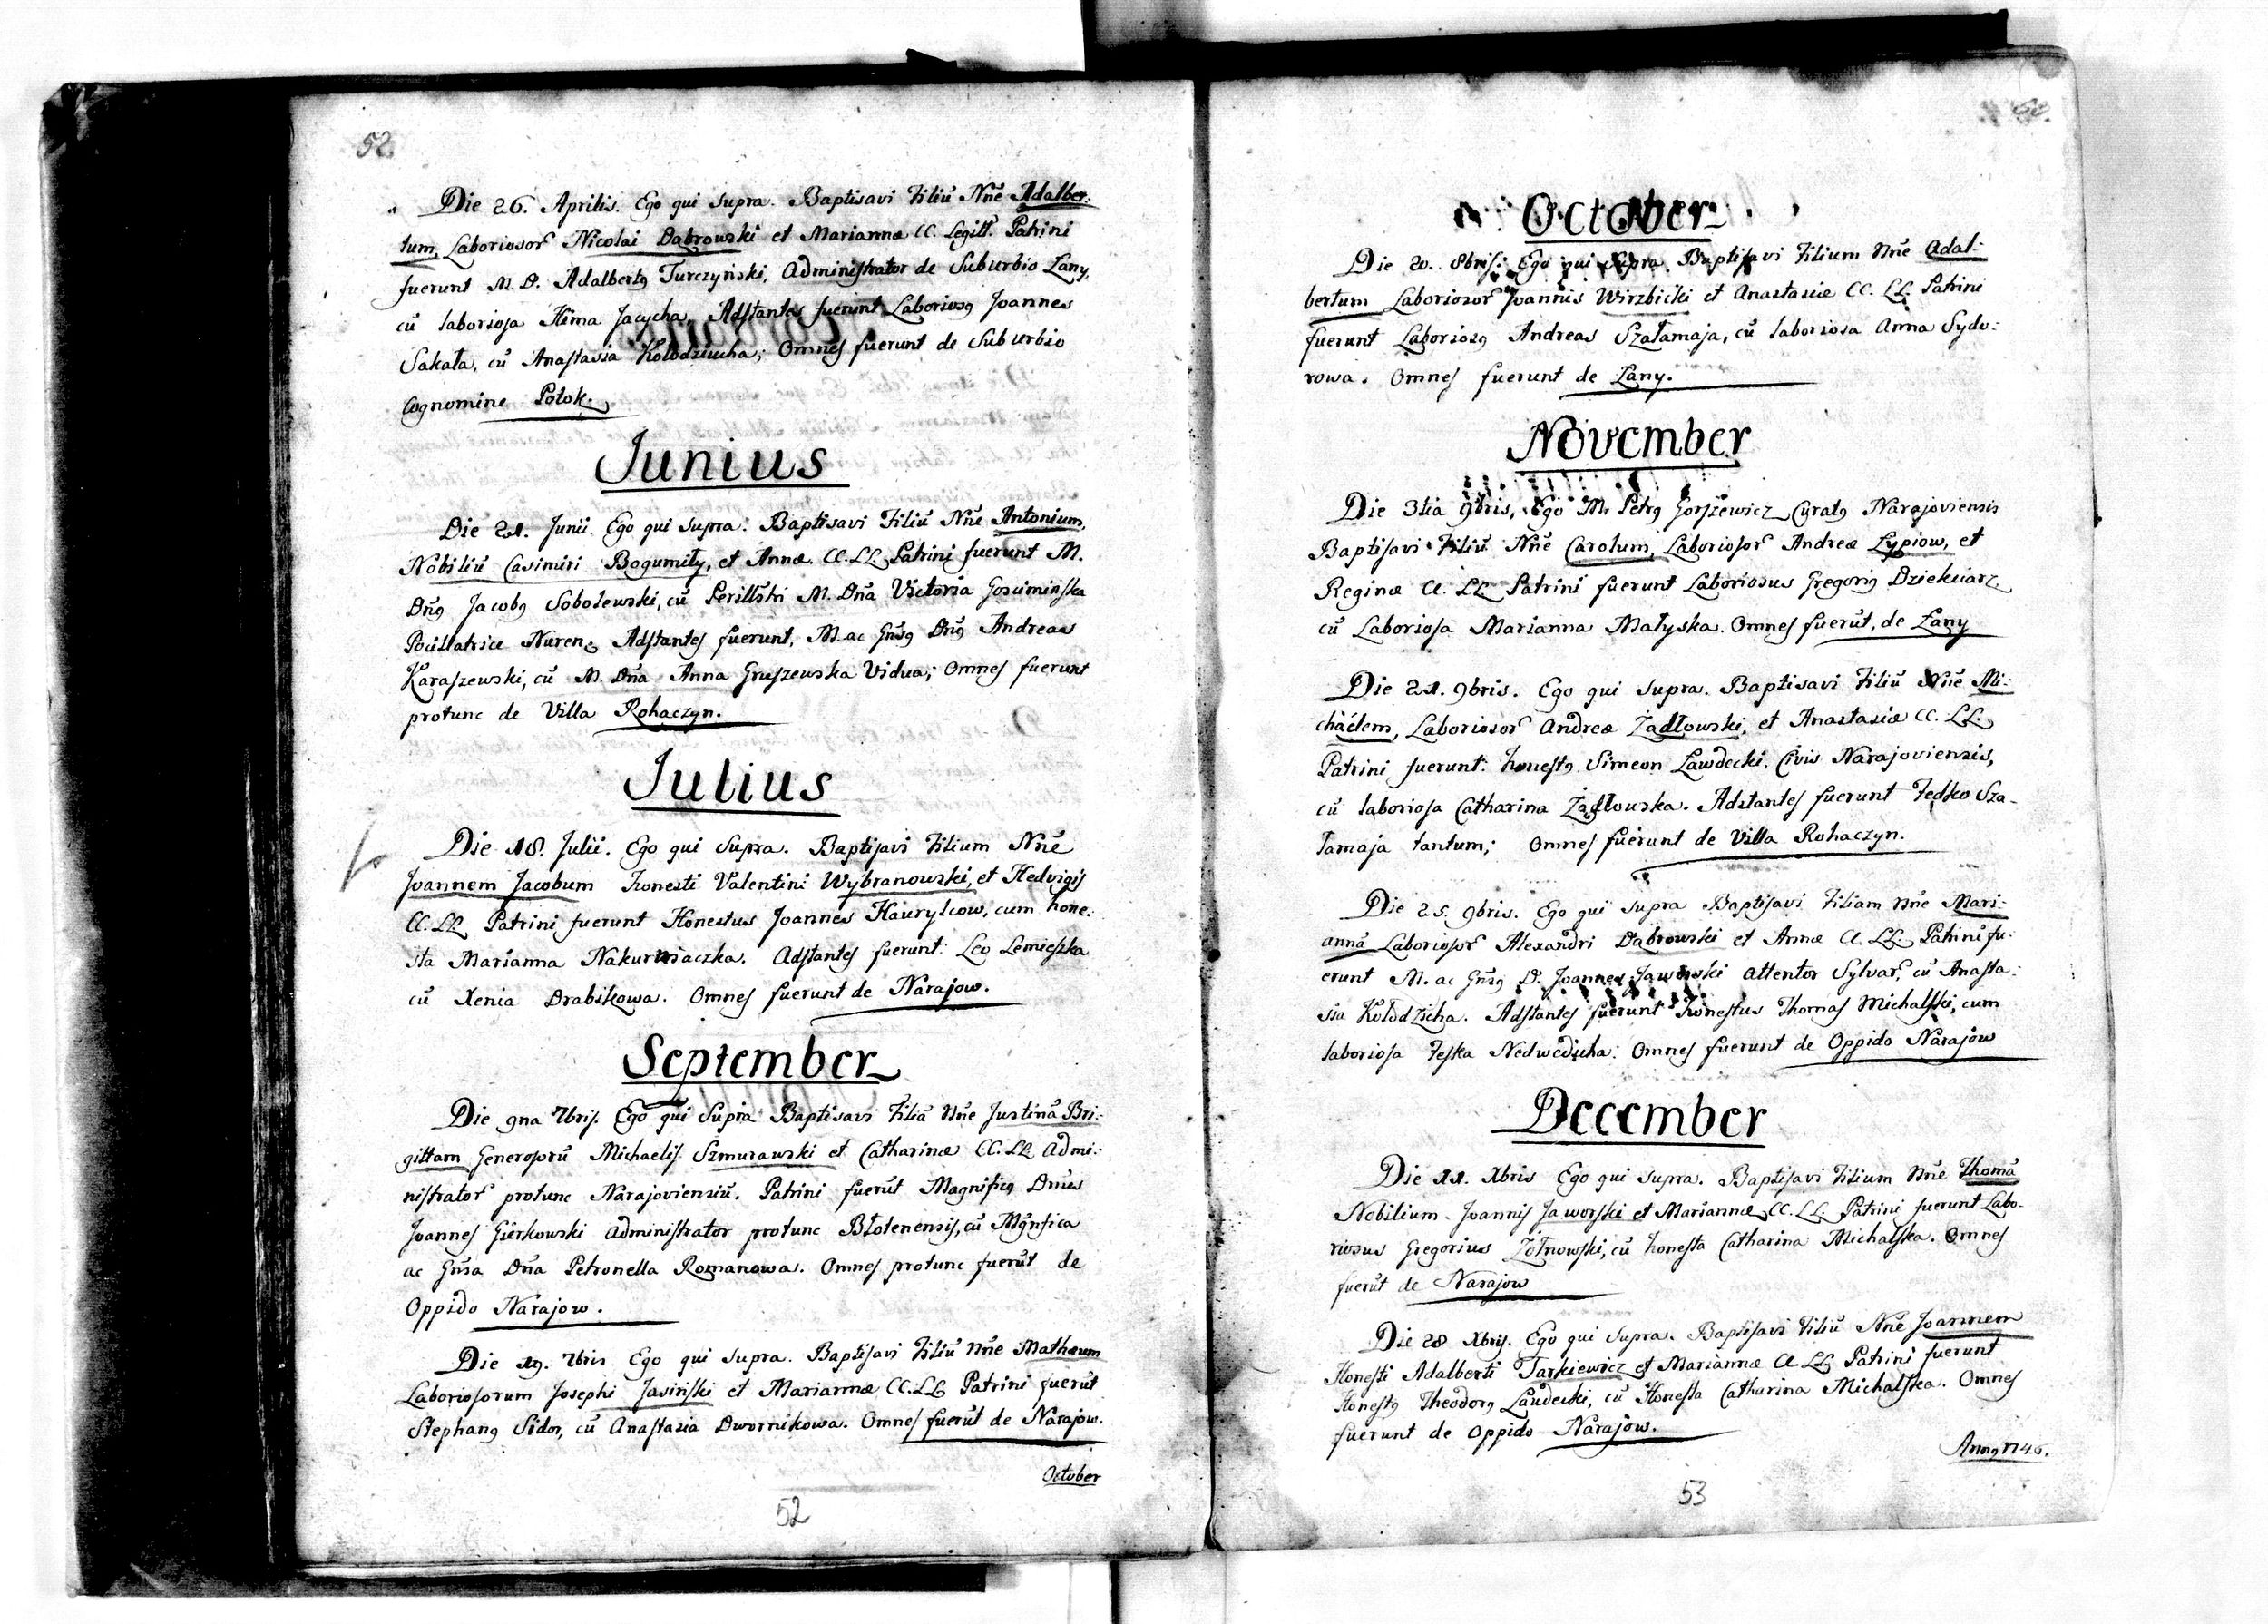 52
Die 26. Aprilis. Ego qui supra. Baptisavi Filiũ Nñe Adalber:
tum, Laboriosorᷣ Nicolai Dąbrowski et Mariannæ CC. Legitt. Patrini
fuerunt M. D. Adalbertꝰ Turczyński, Administrator de Suburbio Łany,
cũ laboriosa Hima Jacycha, Adstantes fuerunt Laboriosꝰ Joannes
Sakała, cũ Anastasia Kołodziucha; Omnes fuerunt de Suburbio
Cognomine Potok.
Junius
Die 21. Junii Ego qui supra. Baptisavi Filiũ Nñe Antonium,
Nobiliũ Casimiri Bogumiły, et Annæ. CC. LL. Patrini fuerunt M.
Dñꝰ Jacobꝰ Sobolewski, cũ Perillstri M. Dña Victoria Gosciminska
Adstantes fuerunt, M. ac Gñsꝰ Dñꝰ Andreas
Karaszewski, cũ M. Dña Anna Gruszewska Vidua; Omnes fuerunt
protunc de Villa Rohaczyn.
Julius
Die 18. Julii. Ego qui supra. Baptisavi Filium Nñe
Joannem Jacobum honesti Valentini Wybranowski, et Hedvigis
CC. LL. Patrini fuerunt Honestus Joannes Hawrylcow, cum hone:
sta Marianna Nakurniaczka. Adstantes fuerunt: Leo Lemieszka
cũ Xenia Drabikowa. Omnes fuerunt de Narajow.
September
Die 9na 7bris. Ego qui Supra Baptisavi Filiã Nñe Justinã Bri:
gittam Generosorũ Michaelis Szmurawski et Catharinæ CC. LL. Admi:
nistratorᷣ protunc Narajoviensiũ. Patrini fuerũt Magnificꝰ Dnus
Joannes Gierkowski Administrator protunc Błotenensis, cũ Mgnfica
ac Gnsa Dña Petronella Romanowa. Omnes protunc fuerũt de
Oppido Narajow.
Die 19. 7bris Ego qui supra. Baptisavi Filiũ Nñe Mathæum
Laboriosorum Josephi Jasiński et Mariannæ CC. LL. Patrini fuerũt
Stephanꝰ Sidor, cũ Anastasia Dwornikowa. Omnes fuerũt de Narajow.
October
52
October
Die 20. 8bris: Ego qui supra. Baptisavi Filium Nñe Adal:
bertum Laboriosorᷣ Joannis Wirzbicki et Anastasiæ CC. LL. Patrini
fuerunt Laboriosꝰ Andreas Szałamaja, cũ laboriosa Anna Sydo:
rowa. Omnes fuerunt de Łany.
November
Die 3tia 9bris, Ego M. Petrꝰ Gorszewicz Curatꝰ Narajoviensis
Baptisavi Filiũ Nñe Carolum, Laboriosorᷣ Andreæ Łypiow, et
Reginæ CC. LL. Patrini fuerunt Laboriosus Gregoriꝰ Dziekciarz
cũ Laboriosa Marianna Małyska. Omnes fuerũt, de Łany
Die 21. 9bris. Ego qui supra. Baptisavi Filiũ Nñe Mi:
chäelem, Laboriosorᷣ Andreæ Żądłowski, et Anastasiæ CC. LL.
Patrini fuerunt: honestꝰ Simeon Ławdecki. Civis Narajoviensis,
cũ laboriosa Catharina Żądłowska. Adstantes fuerunt Fedko Sza-
łamaja tantum; Omnes fuerunt de Villa Rohaczyn.
Die 25. 9bris. Ego qui supra Baptisavi Filiam Nñe Mari:
annã Laboriosorᷣ Alexandri Dąbrowski et Annæ CC. LL. Patrini fu:
erunt M. ac Gñsꝰ D. Joannes Jaworski attentor Sylvarᷣ, cũ Anasta:
sia Kołodzicha. Adstantes fuerunt Honestus Thomas Michalski, cum
laboriosa Feska Nedwedicha: Omnes fuerunt de Oppido Narajow
December
Die 11. Xbris Ego qui supra. Baptisavi Filium Nñe Thomã
Nobilium Joannis Jaworski et Mariannæ CC. LL. Patrini fuerunt Labo-
riosus Gregorius Żołnowski, cũ honesta Catharina Michalska. Omnes
fuerũt de Narajow
Die 28 Xbris. Ego qui supra. Baptisavi Filiũ Nñe Joannem
Honesti Adalberti Tarkiewicz et Mariannæ CC. LL. Patrini fuerunt
Honestꝰ Theodorꝰ Łaudecki, cũ Honesta Catharina Michalska. Omnes
fuerunt de Oppido Narajow.
Annꝰ 1746.
53